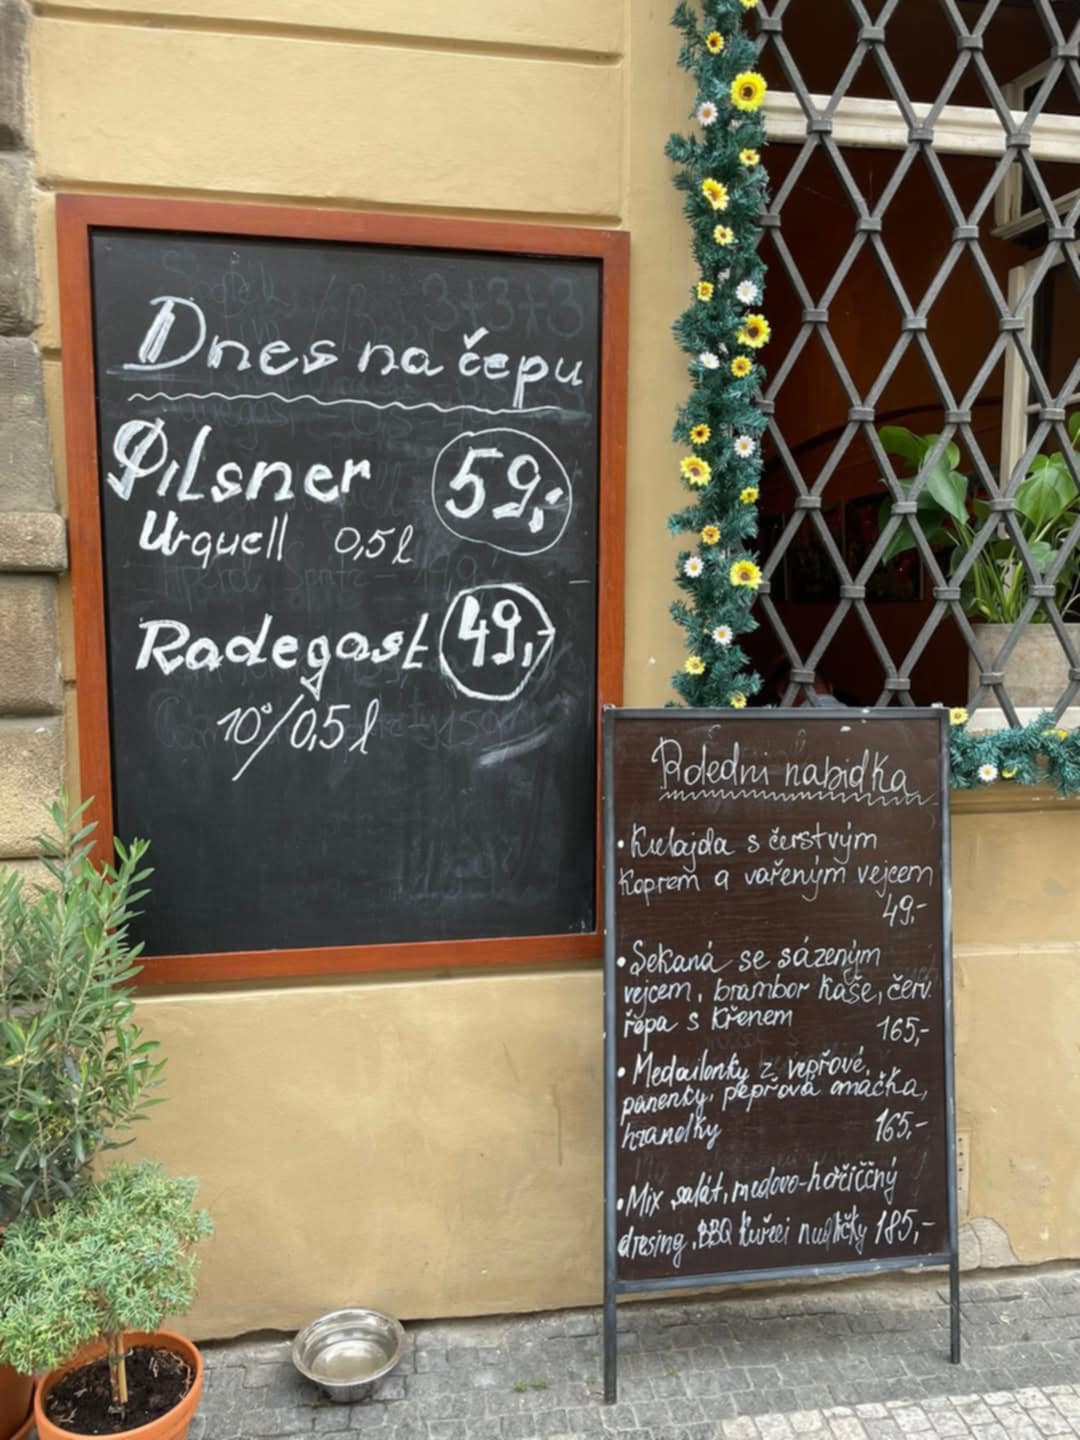 Dnes na čepu
Pilsner 59,-
Urquell 0,5 l
Radegast 49,-
10°/0,5 l
Polední nabídka
• Kulajda s čerstvým
koprem a vařeným vejcem
49,-
• Sekaná se sázeným
vejcem, brambor kaše, červ.
řepa s křenem 165,-
• Medailonky z vepřové
panenky, pepřová omáčka,
hranolky 165,-
• Mix salát, medovo-hořiččný
dresing, BBQ kuřecí nudličky 185,-